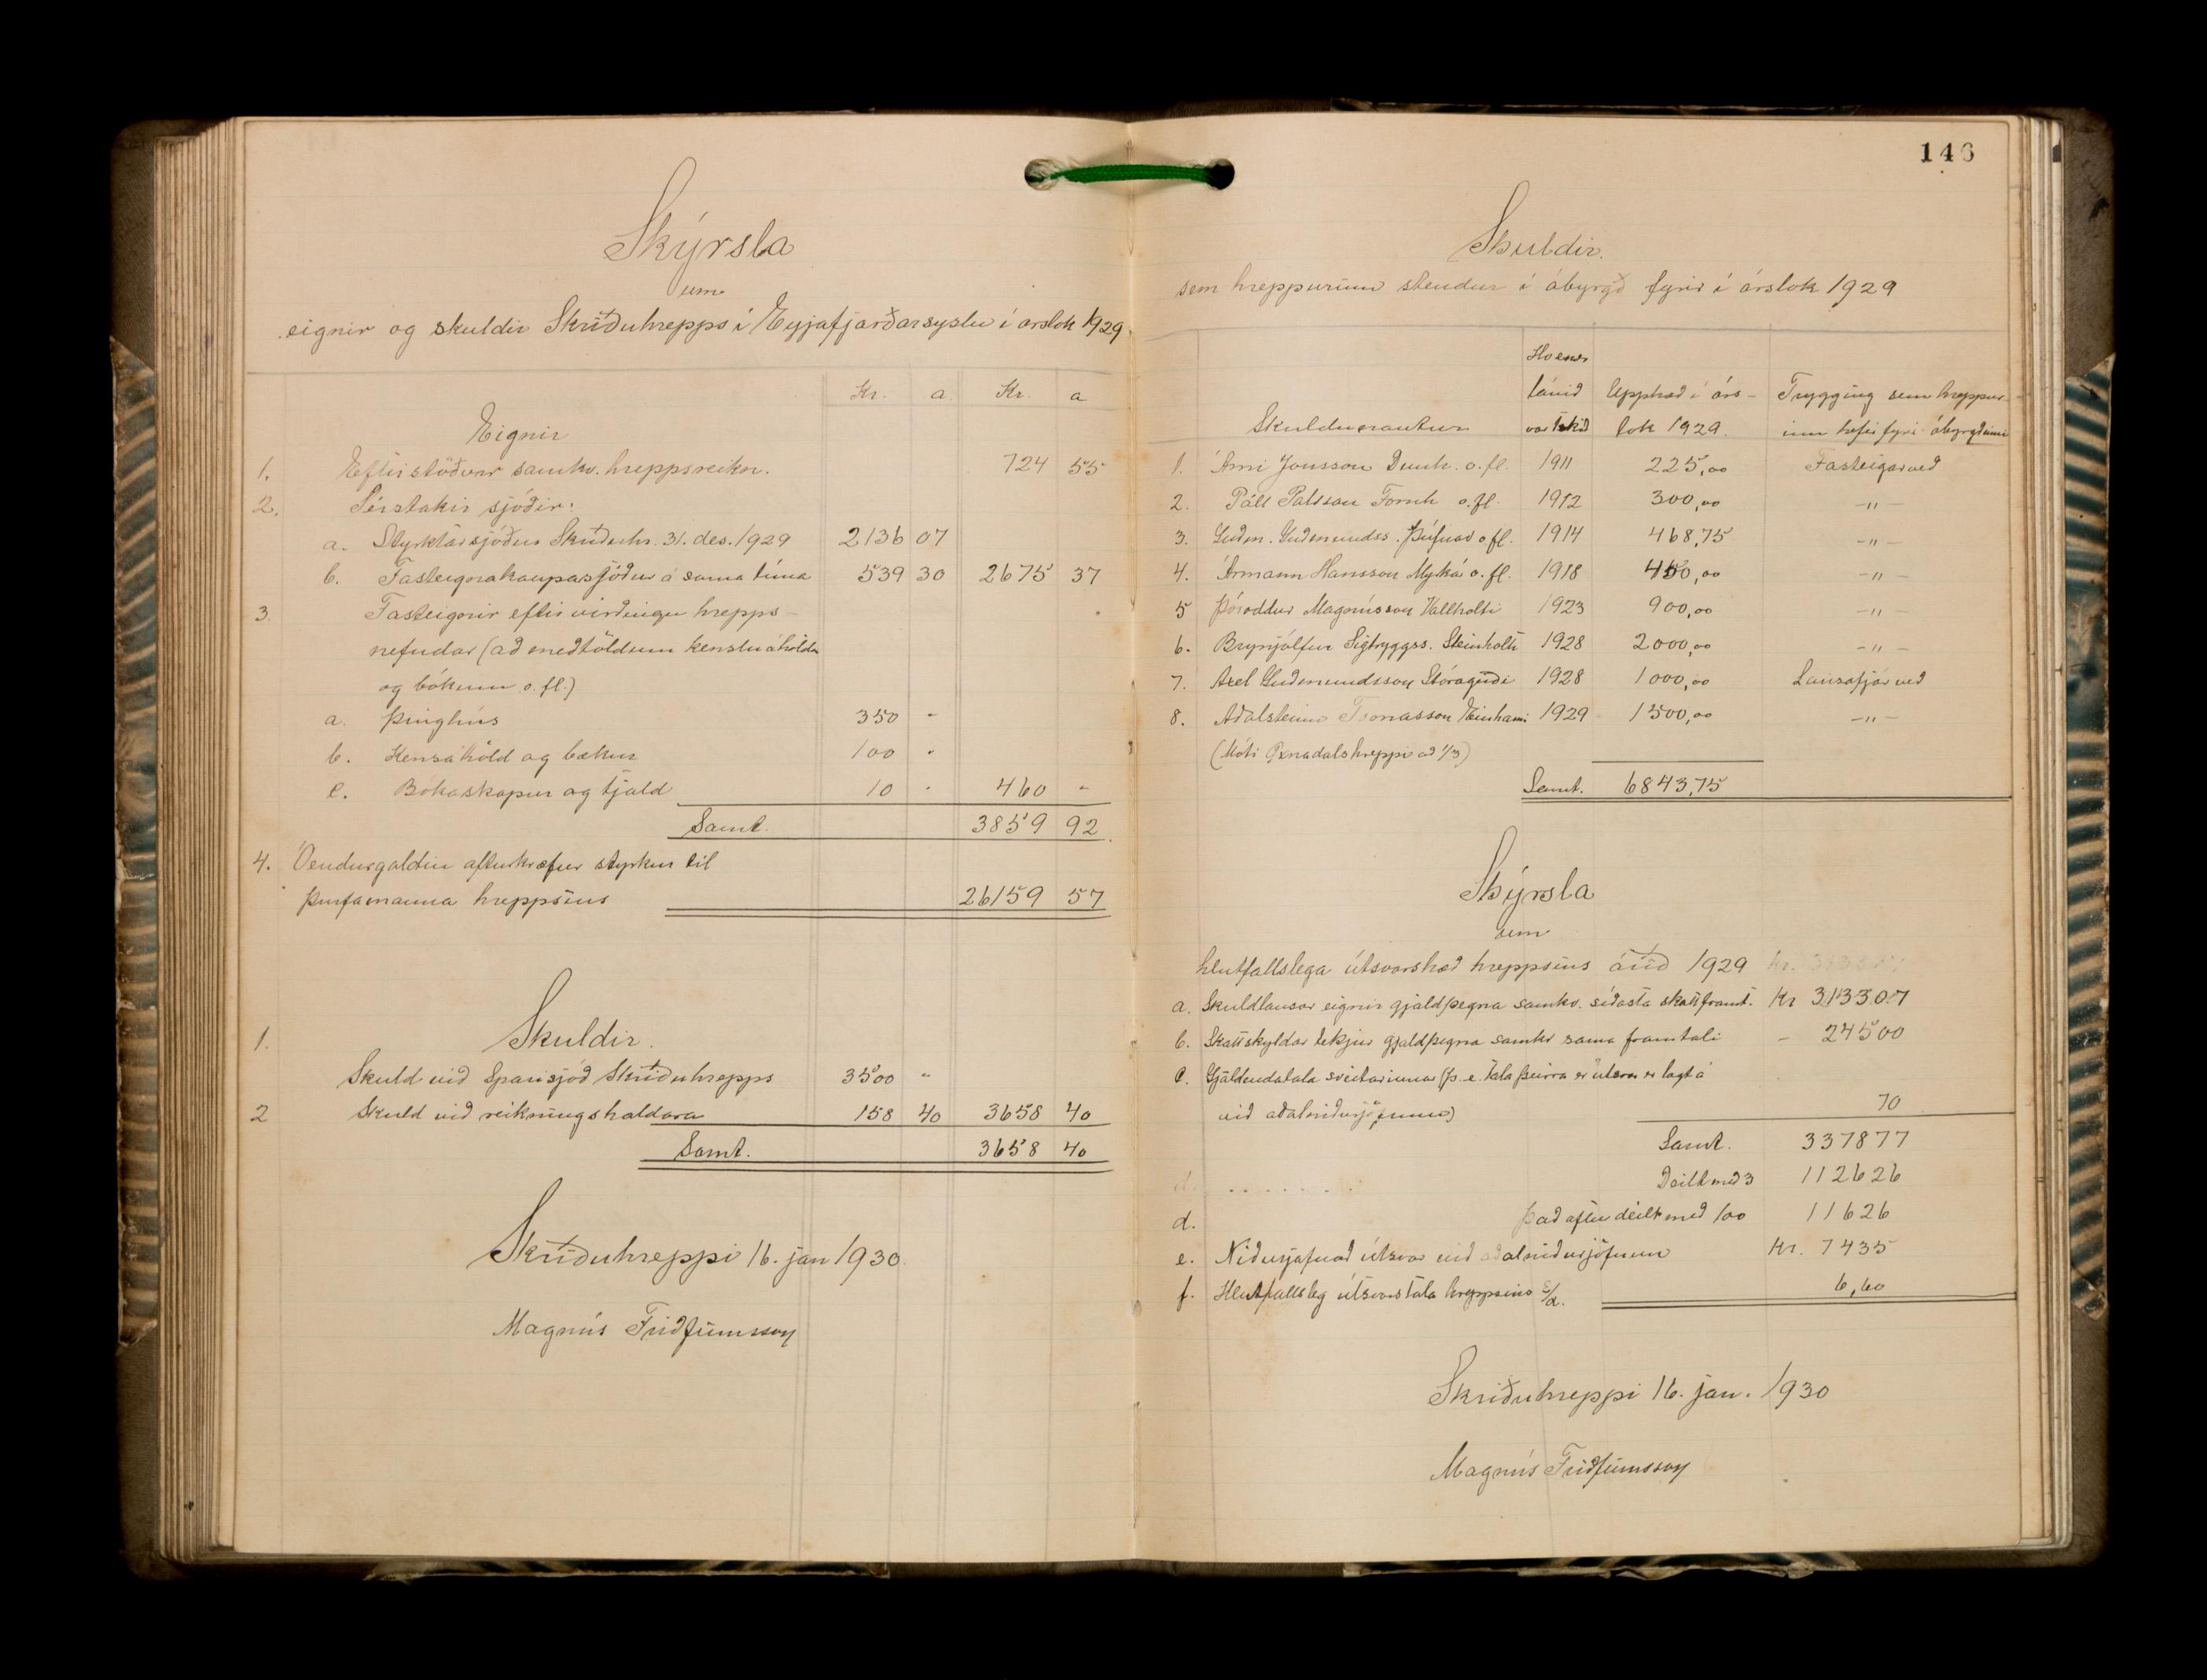 Skýrsla
um
eignir og skuldir Skriðuhrepps í Eyjafjarðarsýslu í árslok 1929
Kr. a. Kr. a
Eignir
1. Eftirstöðvar samkv. hreppsreikn. 724 55
2. Sérstakir sjóðir:
a. Styrktarsjóður Skriðuhr. 31. des. 1929 2136 07
b. Fasteignakaupasjóður á sama tíma 539 30 2675 37
3. Fasteignir eftir virðingu hrepps-
nefndar (að meðtöldum kensluáhöldum
og bókum o. fl.)
a. Þinghús 350 -
b. Kensluáhöld og bækur 100 -
c. Bókaskápur og tjald 10 - 460 -
Samt. 3859 92
4. Óendurgoldin afturkræfur styrkur til
þurfamanna hreppsins 26159 57
Skuldir.
1. Skuld við Sparisjóð Skriðuhrepps 3500 "
2 Skuld við reikningshaldara 158 40 3658 40
Samt. 3658 40
Skriðuhreppi 16. jan 1930.
Magnús Friðfinnsson
146
Skuldir.
sem hreppurinn stendur í ábyrgð fyrir í árslok 1929
Skuldunautur Hvenær lánið var tekið Upphæð í árs-lok 1929. Trygging sem hreppur-inn hefir fyrir ábyrgðinni
1. Árni Jónsson Dunh. o. fl. 1911 225,00 Fasteignarveð
2. Páll Pálsson Fornh o. fl. 1912 300,00 -"-
3. Guðm. Guðmundss. Þúfnav. o. fl. 1914 468,75 -"-
4. Ármann Hansson Myrká o. fl. 1918 450,00 -"-
5 Þóroddur Magnússon Vallholti 1923 900,00 -"-
6. Brynjólfur Sigtryggss. Steinholti 1928 2000,00 -"-
7. Axel Guðmundsson Stóragerði 1928 1000,00 Lausafjárveð
8. Aðalsteinn Tómasson Einhami 1929 1500,00 -"-
(Móti Öxnadalshreppi að 1/3)
Samt. 6843,75
Skýrsla
um
hlutfallslega útsvarshæð hreppsins árið 1929
a. Skuldlausar eignir gjaldþegna samkv. síðasta skattframt. Kr 313307
b. Skattskyldar tekjur gjaldþegna samkv sama framtali - 24500
c. Gjaldendatala sveitarinnar (þ. e. tala þeirra er útsvar er lagt á
við aðalniðurjöfnun) 70
Samt. 337877
Deilt með 3 112626
d. Það aftur deilt með 100 11626
e. Niðurjafnað útsvar við aðalniðurjöfnun Kr. 7435
f. Hlutfallsleg útsvarstala hreppsins e/d. 6,60
Skriðuhreppi 16. jan. 1930
Magnús Friðfinnsson